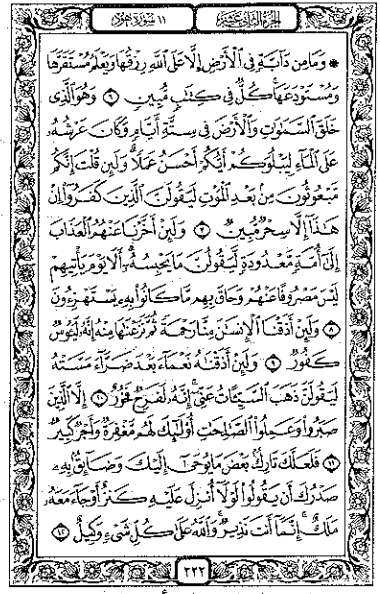 الجزء الثاني عشر
١١ سورة هود
۞ وَمَا مِن دَآبَّةٍ فِى ٱلْأَرْضِ إِلَّا عَلَى ٱللَّهِ رِزْقُهَا وَيَعْلَمُ مُسْتَقَرَّهَا
وَمُسْتَوْدَعَهَا كُلٌّ فِى كِتَٰبٍ مُّبِينٍ ٦ وَهُوَ ٱلَّذِى
خَلَقَ ٱلسَّمَٰوَٰتِ وَٱلْأَرْضَ فِى سِتَّةِ أَيَّامٍ وَكَانَ عَرْشُهُۥ
عَلَى ٱلْمَآءِ لِيَبْلُوَكُمْ أَيُّكُمْ أَحْسَنُ عَمَلًا وَلَئِن قُلْتَ إِنَّكُم
مَّبْعُوثُونَ مِنۢ بَعْدِ ٱلْمَوْتِ لَيَقُولَنَّ ٱلَّذِينَ كَفَرُوٓا۟ إِنْ
هَٰذَآ إِلَّا سِحْرٌ مُّبِينٌ ٧ وَلَئِنْ أَخَّرْنَا عَنْهُمُ ٱلْعَذَابَ
إِلَىٰٓ أُمَّةٍ مَّعْدُودَةٍ لَّيَقُولُنَّ مَا يَحْبِسُهُۥٓ أَلَا يَوْمَ يَأْتِيهِمْ
لَيْسَ مَصْرُوفًا عَنْهُمْ وَحَاقَ بِهِم مَّا كَانُوا۟ بِهِۦ يَسْتَهْزِءُونَ
٨ وَلَئِنْ أَذَقْنَا ٱلْإِنسَٰنَ مِنَّا رَحْمَةً ثُمَّ نَزَعْنَٰهَا مِنْهُ إِنَّهُۥ لَيَـُٔوسٌ
كَفُورٌ ٩ وَلَئِنْ أَذَقْنَٰهُ نَعْمَآءَ بَعْدَ ضَرَّآءَ مَسَّتْهُ
لَيَقُولَنَّ ذَهَبَ ٱلسَّيِّـَٔاتُ عَنِّىٓ إِنَّهُۥ لَفَرِحٌ فَخُورٌ ١٠ إِلَّا ٱلَّذِينَ
صَبَرُوا۟ وَعَمِلُوا۟ ٱلصَّٰلِحَٰتِ أُو۟لَٰٓئِكَ لَهُم مَّغْفِرَةٌ وَأَجْرٌ كَبِيرٌ
١١ فَلَعَلَّكَ تَارِكٌۢ بَعْضَ مَا يُوحَىٰٓ إِلَيْكَ وَضَآئِقٌۢ بِهِۦ
صَدْرُكَ أَن يَقُولُوا۟ لَوْلَآ أُنزِلَ عَلَيْهِ كَنزٌ أَوْ جَآءَ مَعَهُۥ
مَلَكٌ إِنَّمَآ أَنتَ نَذِيرٌ وَٱللَّهُ عَلَىٰ كُلِّ شَىْءٍ وَكِيلٌ ١٢
٢٢٢